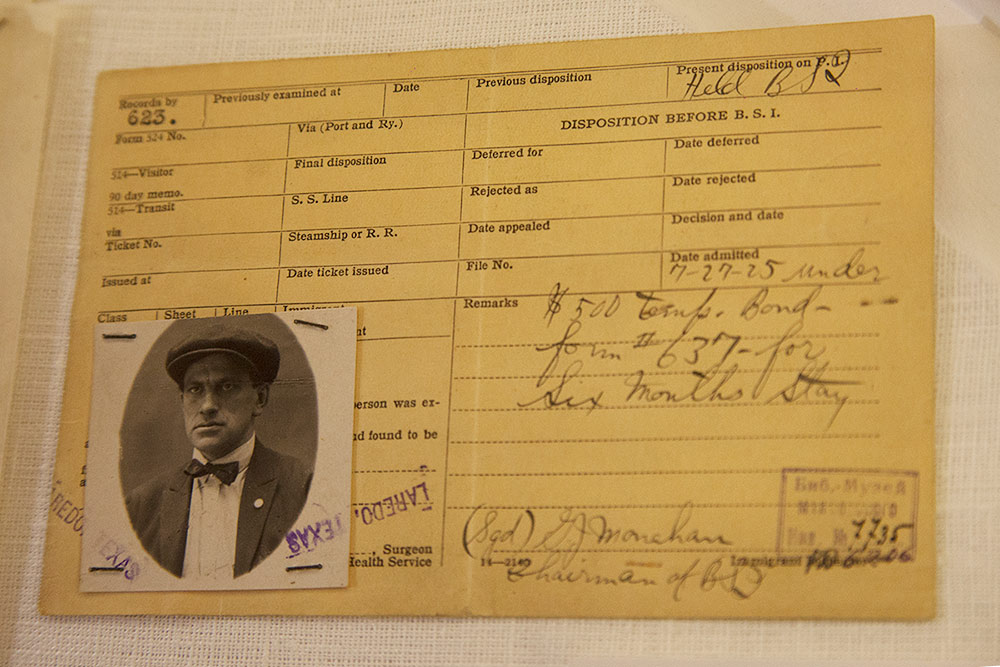 Records by Previously examined at Date Previous disposition Present disposition on P.I.
623. Held BSI
Form 524 No. Via (Port and Ry.) DISPOSITION BEFORE B. S. I.
524—Visitor Final disposition Deferred for Date deferred
90 day memo.
524—Transit S. S. Line Rejected as Date rejected
via
Ticket No. Steamship or R. R. Date appealed Decision and date
Issued at Date ticket issued File No. Date admitted
7-27-25 under
Class Sheet Line Immigrant Remarks $500 Temp. Bond-
form # 637-for
Six Months Stay
person was ex-
nd found to be
LAREDO, TEXAS
LAREDO, TEXAS
, Surgeon
Health Service
(Sgd) G J Monahan
14—2140 Immigrant
Chairman of BSI
Биб.-Музей
Инв. № 7735